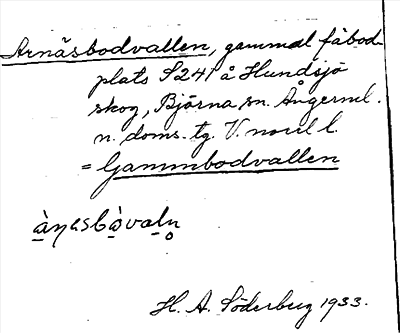 Arnäsbodvallen, gammal fäbod-
plats S241 å Hundsjö
skog, Björna sn. Ångerml.
n. doms. tg. V. norrl l.
= Gammbodvallen
H. A. Söderberg 1933.